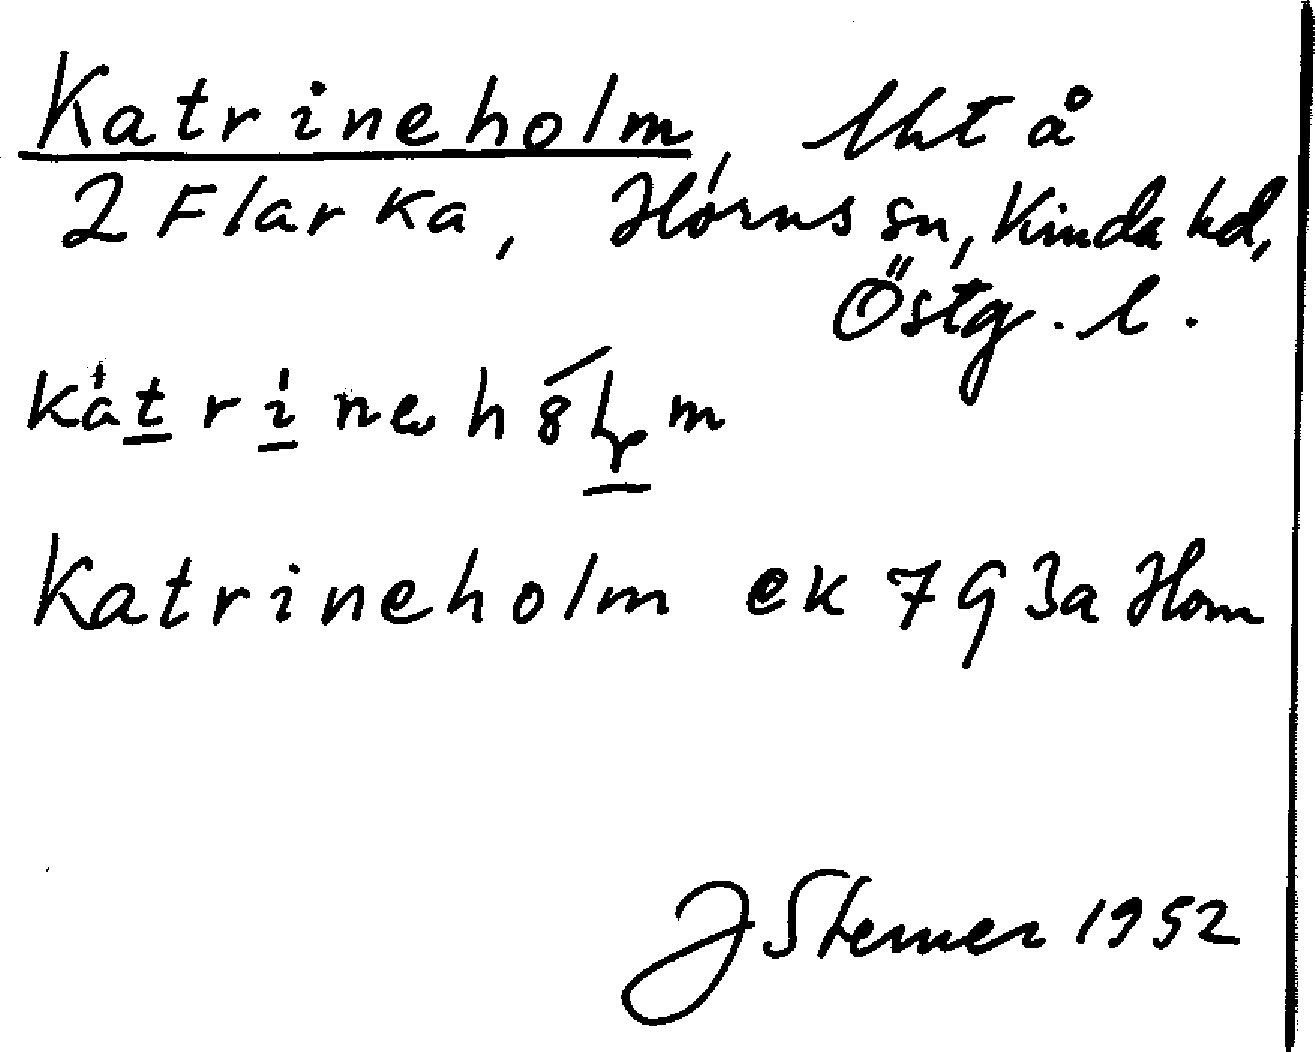 Katrineholm, lht å
2 Flarka, Horns sn, Kinda hd,
Östg. l.
Katrineholm ek 7 G 3a Horn
J Sterner 1952